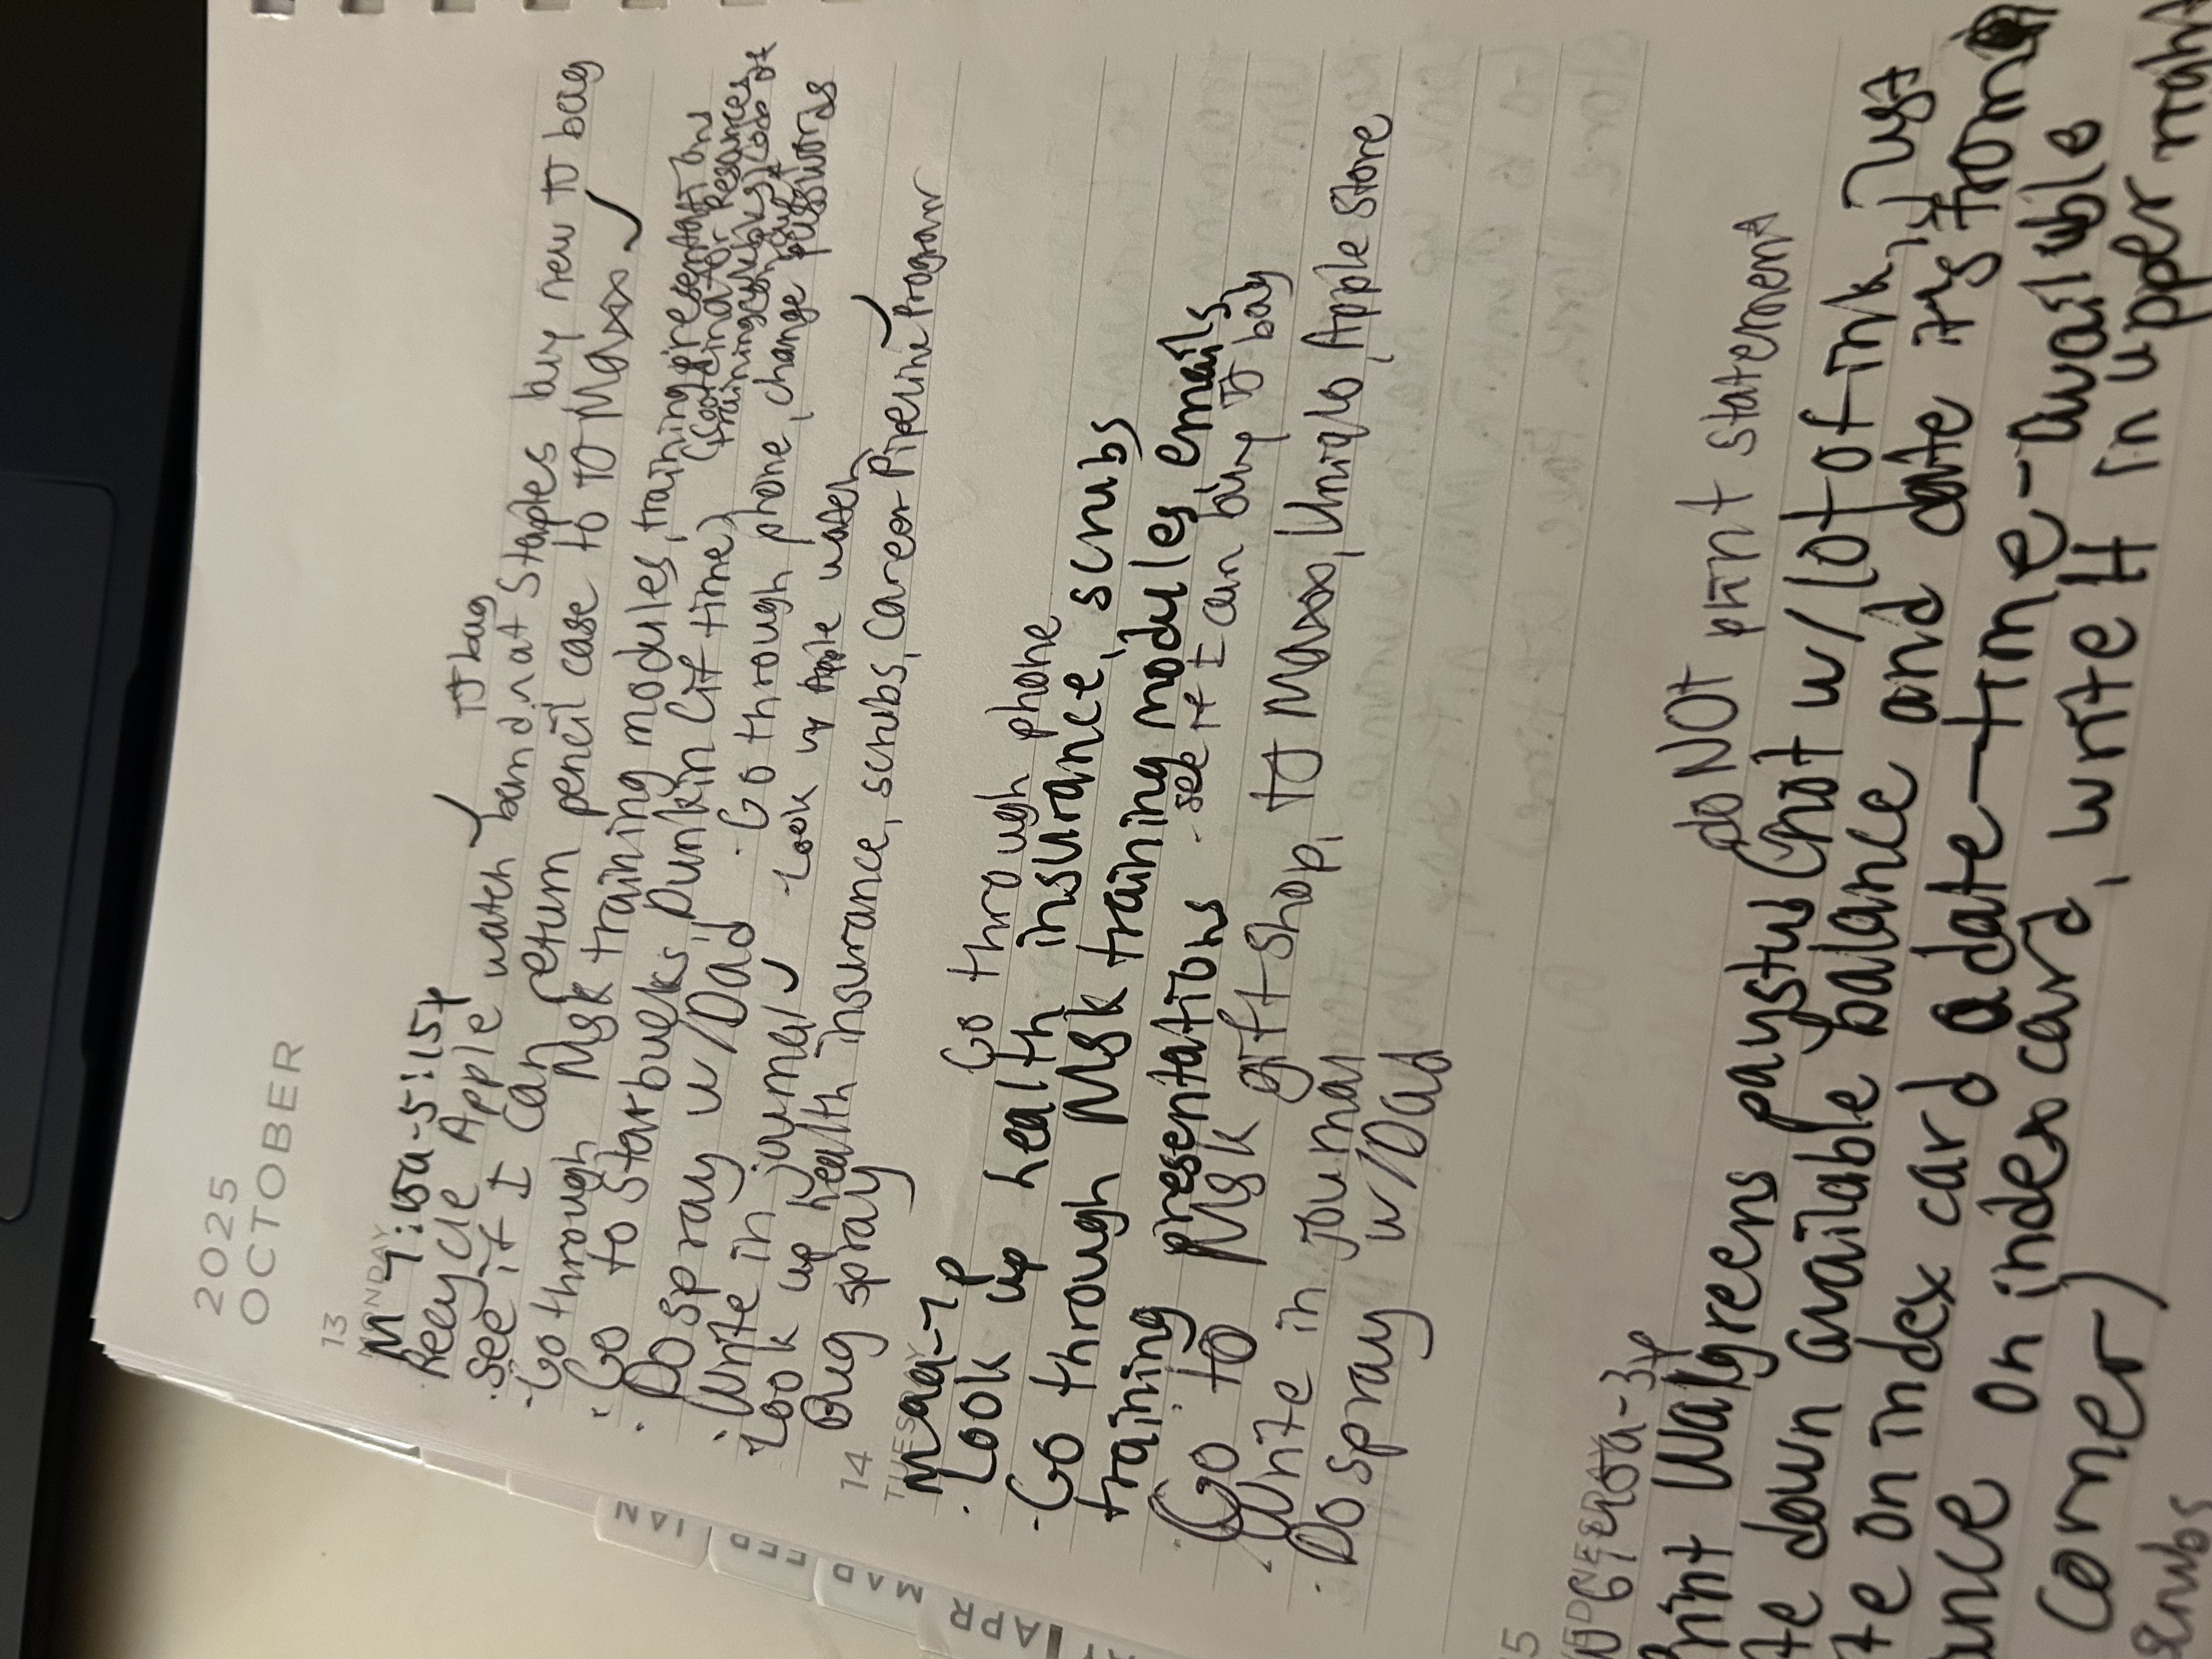 2025
OCTOBER
13
MONDAY
M 7:15a-5:15p
TJ bag
· Recycle Apple watch band at Staples buy new TJ bag
· see if I can return pencil case to TJ Maxx ✓
· Go through Msk training modules, training presentations
· Go to Starbucks Dunkin (if time)
· Do spray w/Dad
· Go through phone, change passwords
· Write in journal ✓
· Look up Apple watch
· Look up health insurance, scrubs, Career Pipeline Program
Bug spray
14
TUESDAY
Go through phone
· Look up health insurance, scrubs
· Go through Msk training modules emails
training presentations
· see if I can buy TJ bag
· Go to Msk gift shop, TJ Maxx, Uniqlo, Apple Store
· Write in journal
· Do spray w/Dad
15
do NOT print statement
Walgreens paystub (not w/ lot of ink, just
down available balance and date it's from
on index card a date-time-available
on index card, write it in upper right
corner)
scrubs
JAN
FEB
MAR
APR